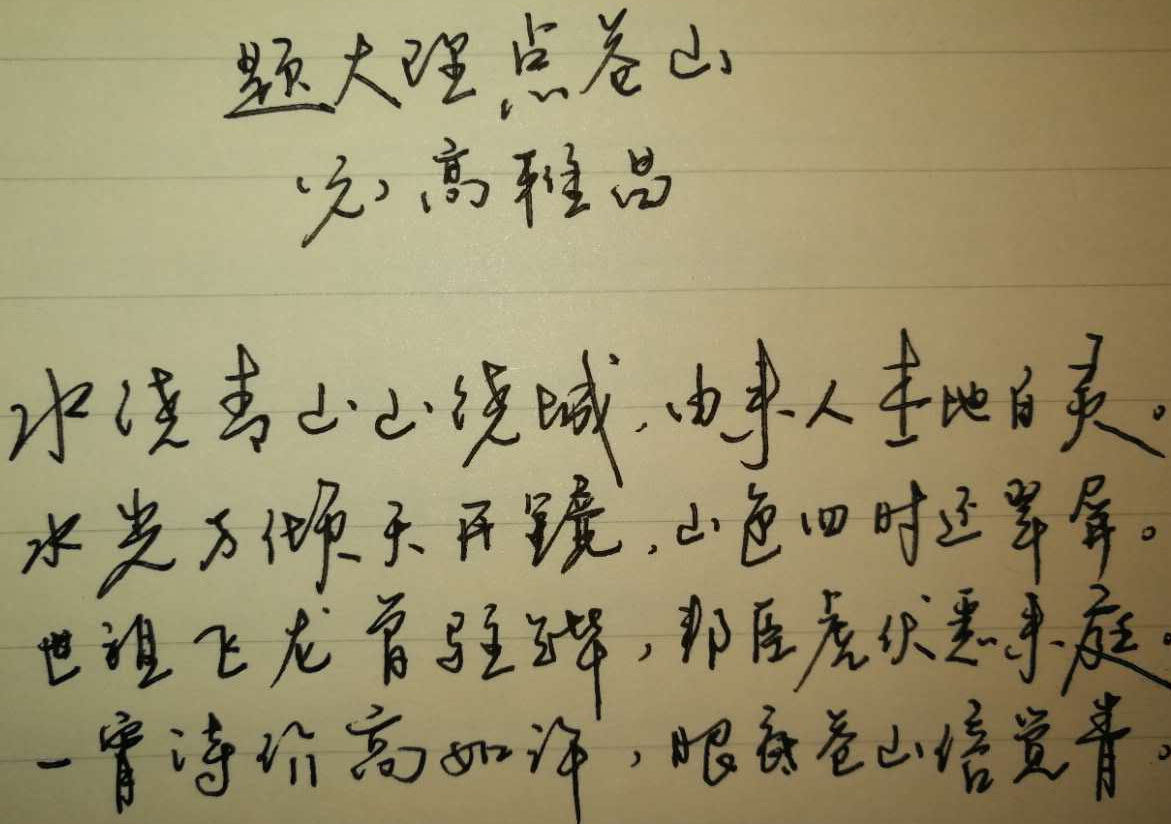 题大理点苍山
(元)高雅昌
水绕青山山绕城,由来人杰地自灵。
水光万倾天开镜,山色四时还翠屏。
世祖飞龙曾驻跸,邦臣虎伏悉来庭。
一宵诗价高如许,眼底苍山倍觉青。